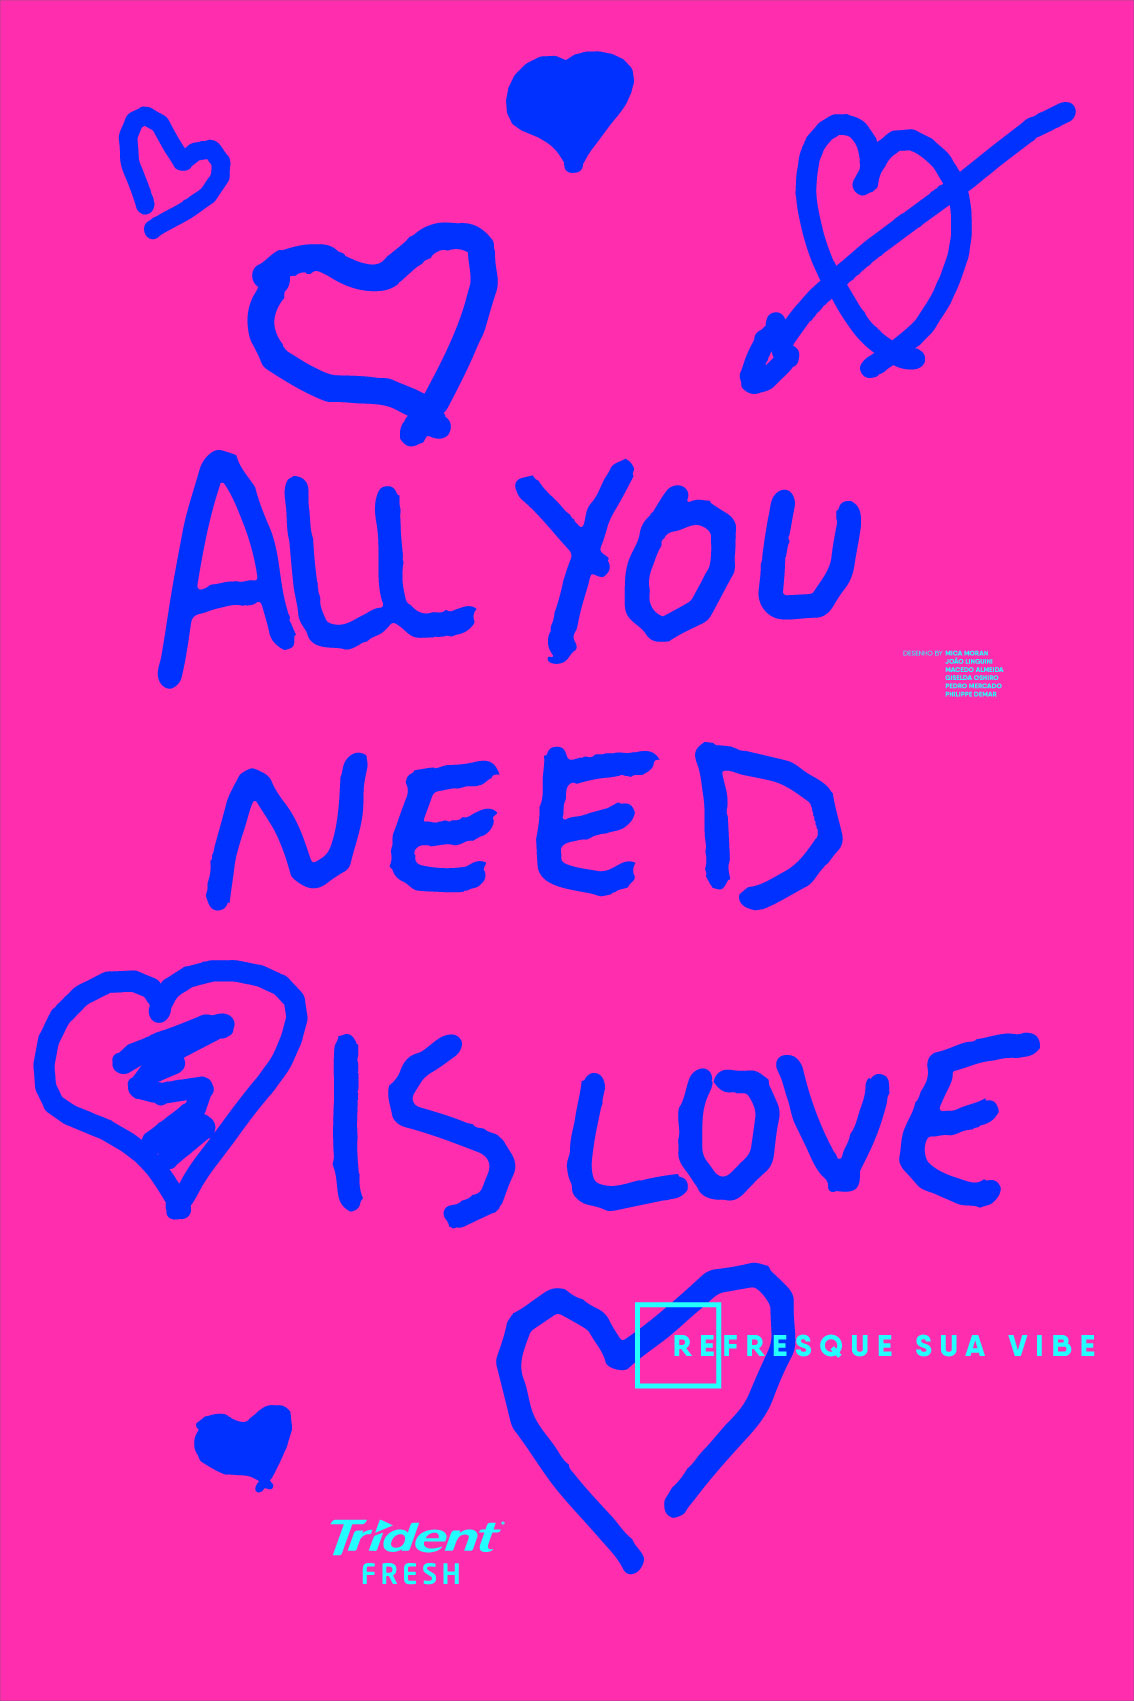 ALL YOU
DESENHO BY MICA MORAN
JOÃO LINGUINI
MACEDO ALMEIDA
GISELDA OSHIRO
PEDRO MERCADO
PHILIPPE DEMAR
NEED
IS LOVE
REFRESQUE SUA VIBE
Trident
FRESH